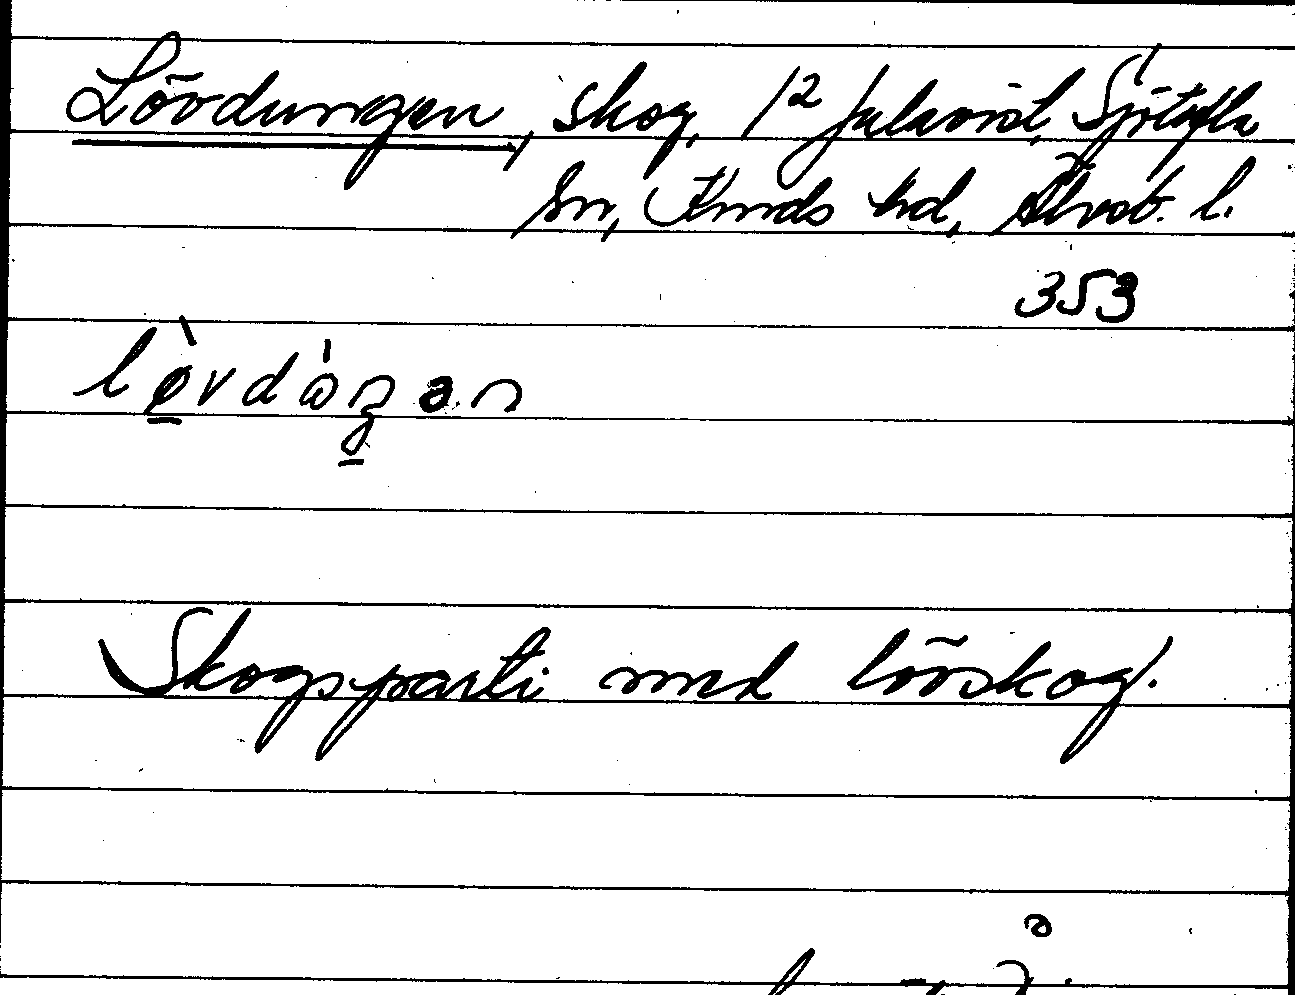 Lövdungen, skog, 1² Julavid, Sjötofta
sn, Kinds hd, Älvsb. l.
353
lø̀vdàŋən
Skogsparti med lövskog.